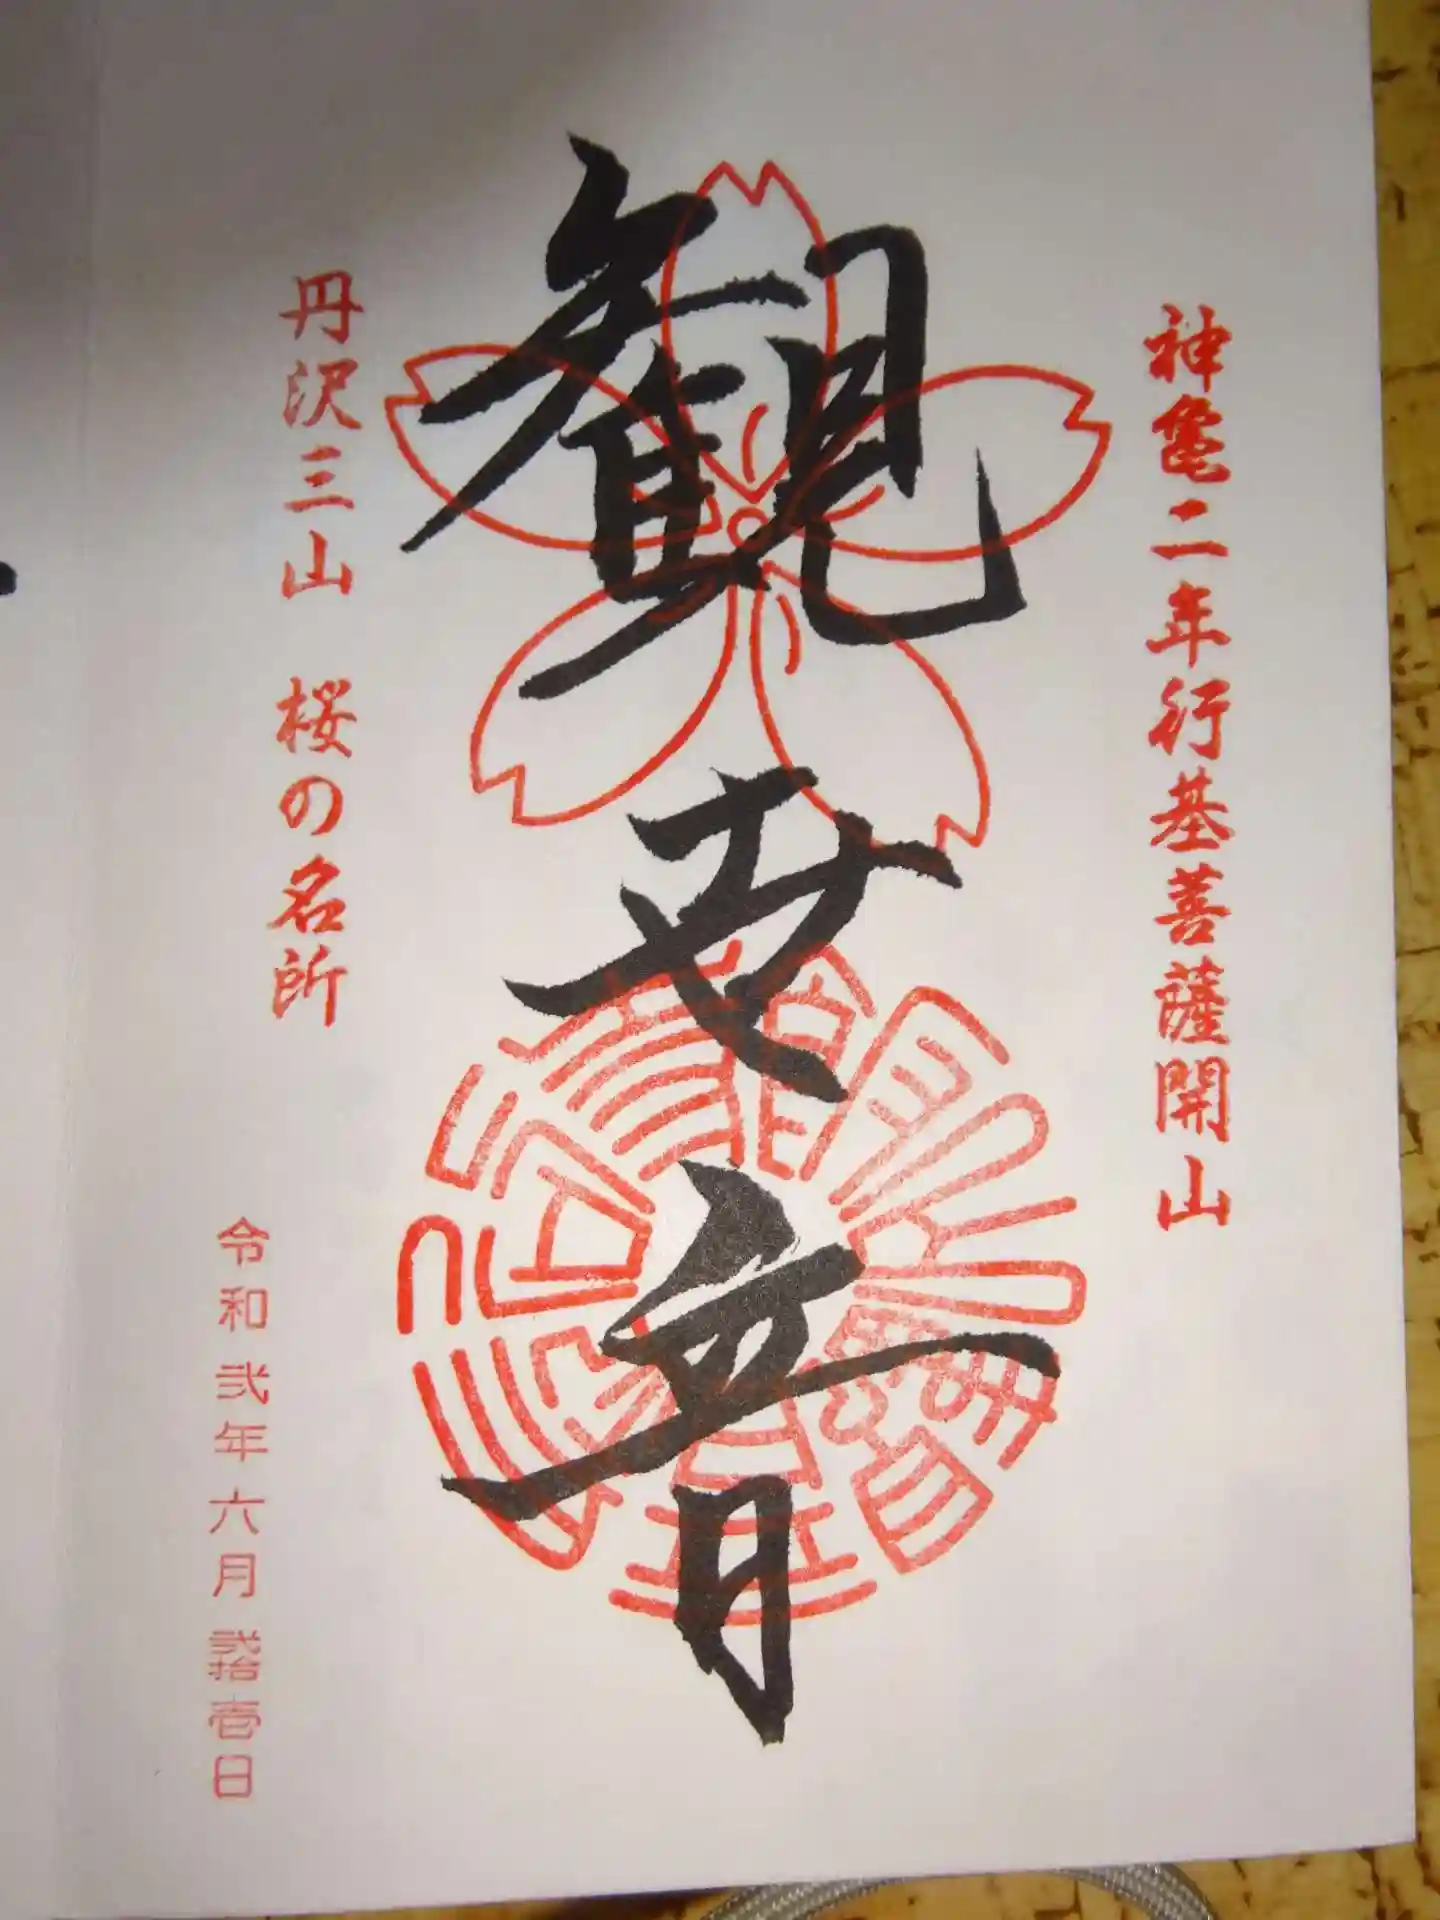 神亀二年行基菩薩開山
観世音
丹沢三山 桜の名所
令和弐年六月弐拾壱日